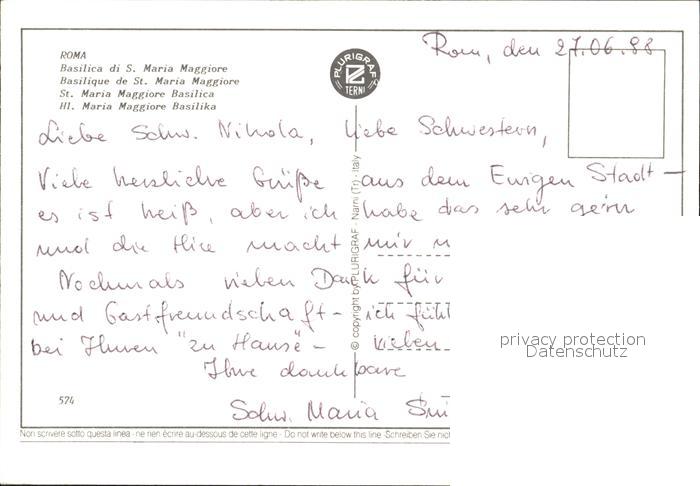 Rom, den 27.06.88
ROMA
Basilica di S. Maria Maggiore
Basilique de St. Maria Maggiore
St. Maria Maggiore Basilica
Hl. Maria Maggiore Basilika
PLURIGRAF
TERNI
Liebe Schw. Nikola, liebe Schwestern,
Viele herzliche Grüße aus dem Ewigen Stadt –
es ist heiß, aber ich habe das sehr gern
und die Hice macht mir n
Nochmals vielen Dank für
und Gastfreundschaft – ich fühl
bei Ihnen "zu Hause" – vielen
Ihre dankbare
Schw. Maria
© copyright by PLURIGRAF - Narni (Tr) - Italy
privacy protection
Datenschutz
574
Non scrivere sotto questa linea - ne rien écrire au-dessous de cette ligne - Do not write below this line - Schreiben Sie nicht